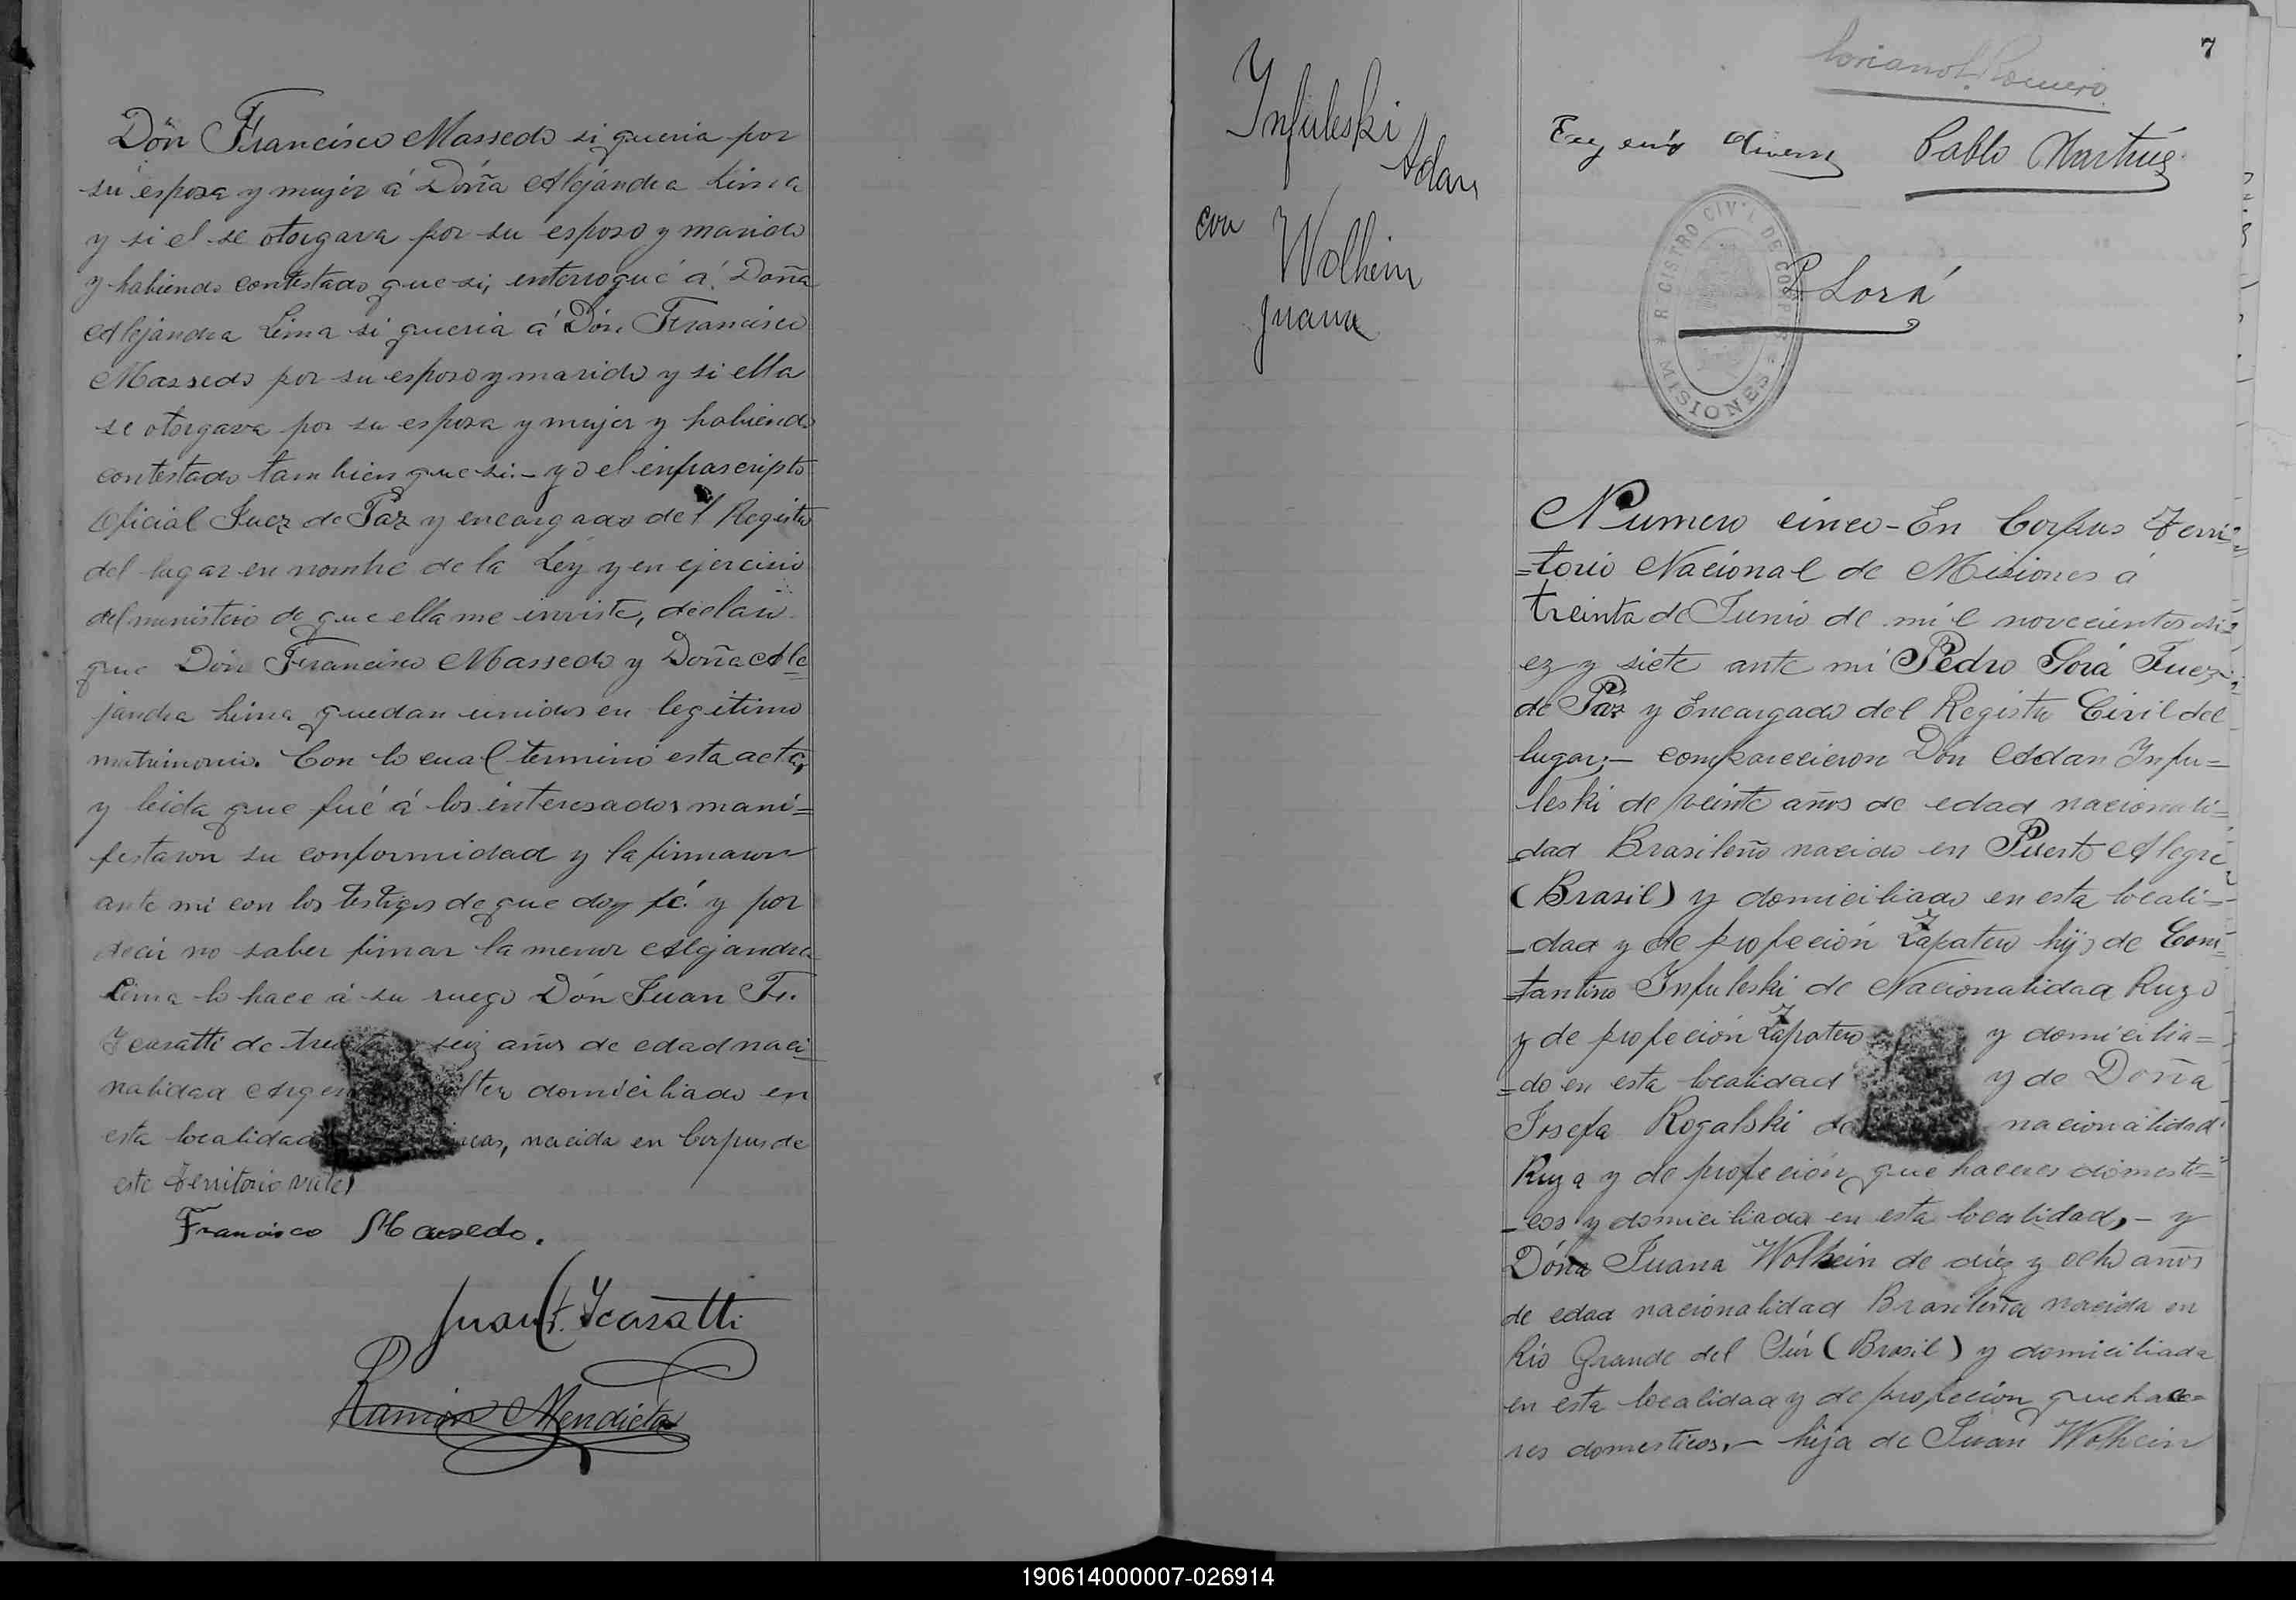 Dön Francisco Massedo si queria por
su esposa y mujer á Doña Alejandra Lima
y si el se otorgava por su esposo y marido
y habiendo contestado que si, enterrogué á Doña
Alejandra Lima si queria á Dón Francisco
Massedo por su esposo y marido y si ella
se otorgava por su esposa y mujer y habiendo
contestado tambien que si.- yo el infrascripto
Oficial Juez de Paz y encargado del Registro
del lugar en nombre de la Ley y en ejercicio
del ministerio de que ella me inviste, declaro
que Dón Francisco Massedo y Doña Ale=
jandra Lima quedan unidos en legitimo
matrimonio. Con lo cual terminó esta acta,
y leida que fué á los interesados mani=
festaron su conformidad y la firmaron
ante mi con los testigos de que doy fé. y por
decir no saber firmar la menor Alejandra
Lima lo hace á su ruego Dón Juan Fr.
de seiz años de edad naci=
nalidad domiciliado en
esta localidad nacida en Corpus de
este Territorio vale)
Francisco Massedo.
Juan
Ramón Mendieta
Infuleski
Adan
con
Wolhein
Juana
7
Romero
Eugenio Pablo Martinez
P Lorá
REGISTRO CIVIL DE CORPUS
* MISIONES *
Numero cinco - En Corpus Terri=
=torio Nacional de Misiones á
treinta de Junio de mil novecientos di=
ez y siete ante mi Pedro Lorá Juez
de Páz y Encargado del Registro Civil del
lugar;- comparecieron Dón Addan Infu=
leski de veinte años de edad nacionali=
dad Brasileño nacido en Puerto Alegre
(Brasil) y domiciliado en esta locali=
=dad y de profeción Zapatero hijo de Cons=
=tantino Infuleski de Nacionalidad Ruzo
y de profeción Zapatero y domicilia=
=do en esta localidad y de Doña
Josefa Rogalski de nacionalidad
Ruza y de profeción que haceres domesti=
=cos y domiciliada en esta localidad,- y
Dóna Juana Wolhein de diez y ocho años
de edad nacionalidad Brasileña nacida en
Rio Grande del Súr (Brasil) y domiciliada
en esta localidad y de profeción que hace=
res domesticos.- hija de Juan Wolhein
190614000007-026914